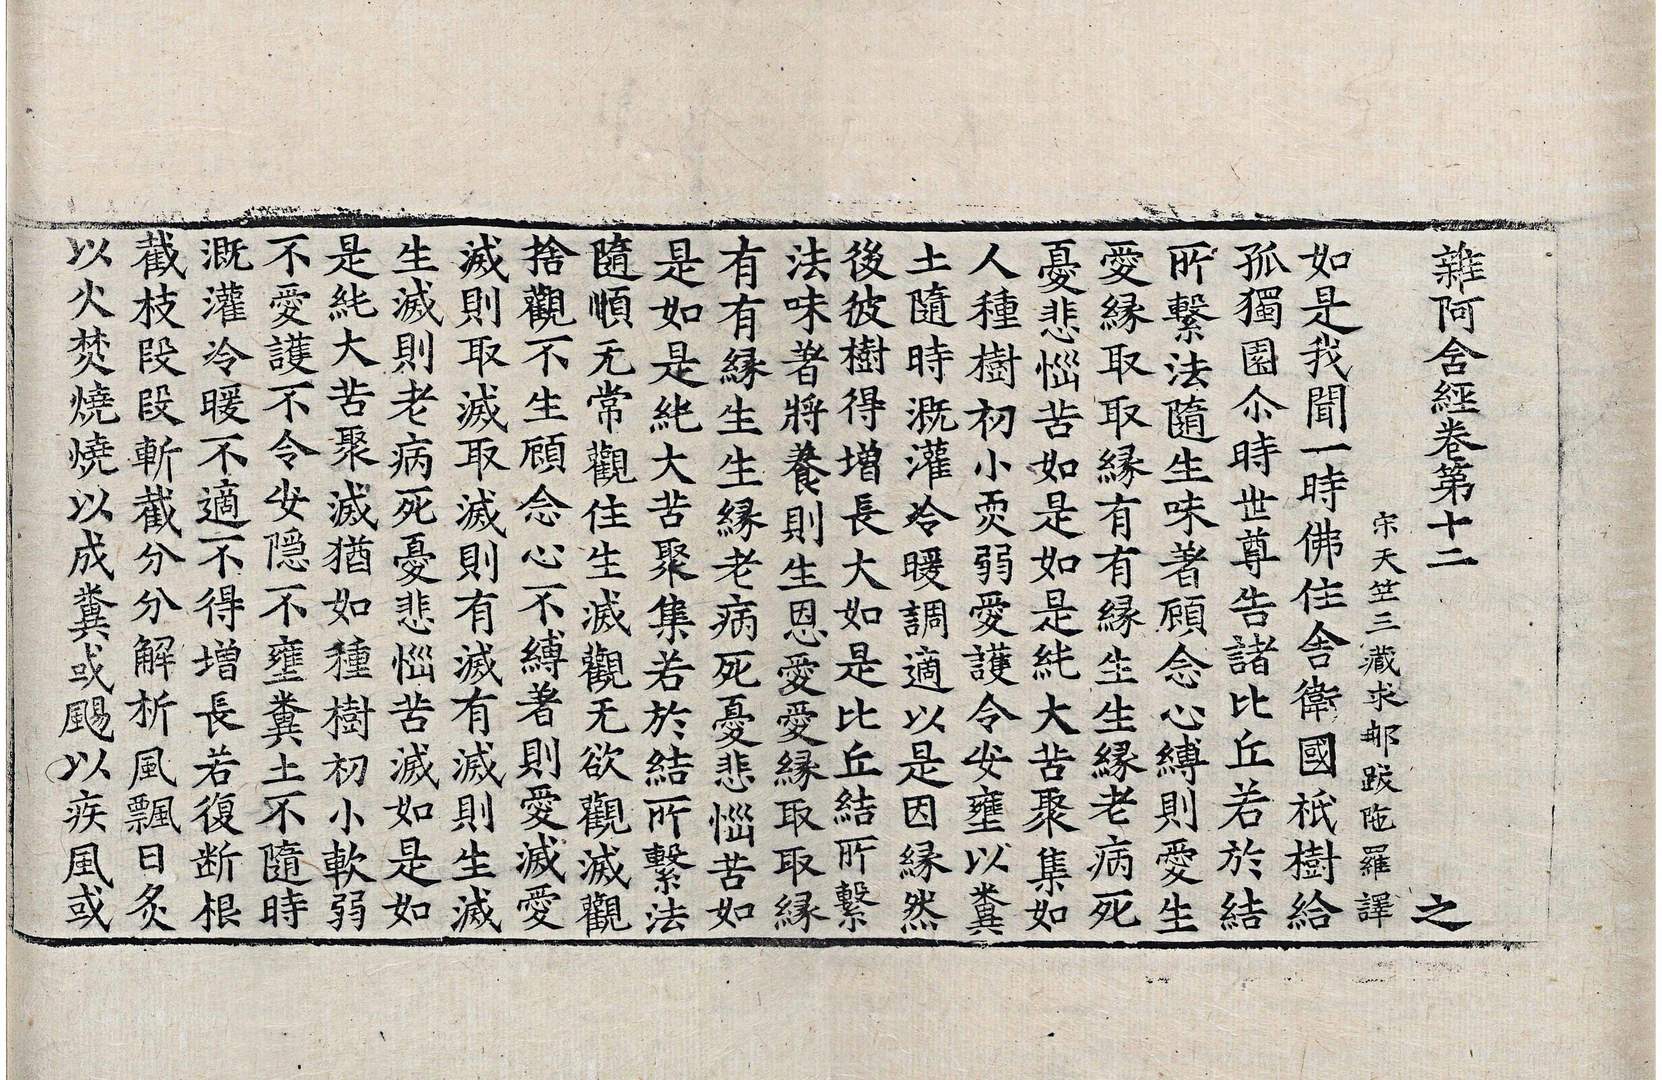 雜阿含經卷第十二 之
宋天竺三藏求那跋陁羅譯
如是我聞一時佛住舍衛國祇樹給
孤獨園尒時世尊告諸比丘若於結
所繫法隨生味著顧念心縛則愛生
愛緣取取緣有有緣生生緣老病死
憂悲惱苦如是如是純大苦聚集如
人種樹初小耎弱愛護令安壅以糞
土隨時溉灌冷暖調適以是因緣然
後彼樹得增長大如是比丘結所繫
法味著將養則生恩愛愛緣取取緣
有有緣生生緣老病死憂悲惱苦如
是如是純大苦聚集若於結所繫法
隨順无常觀住生滅觀无欲觀滅觀
捨觀不生顧念心不縛著則愛滅愛
滅則取滅取滅則有滅有滅則生滅
生滅則老病死憂悲惱苦滅如是如
是純大苦聚滅猶如種樹初小軟弱
不愛護不令安隱不壅糞土不隨時
溉灌冷暖不適不得增長若復断根
截枝段段斬截分分解析風飄日炙
以火焚燒燒以成糞或颺以疾風或